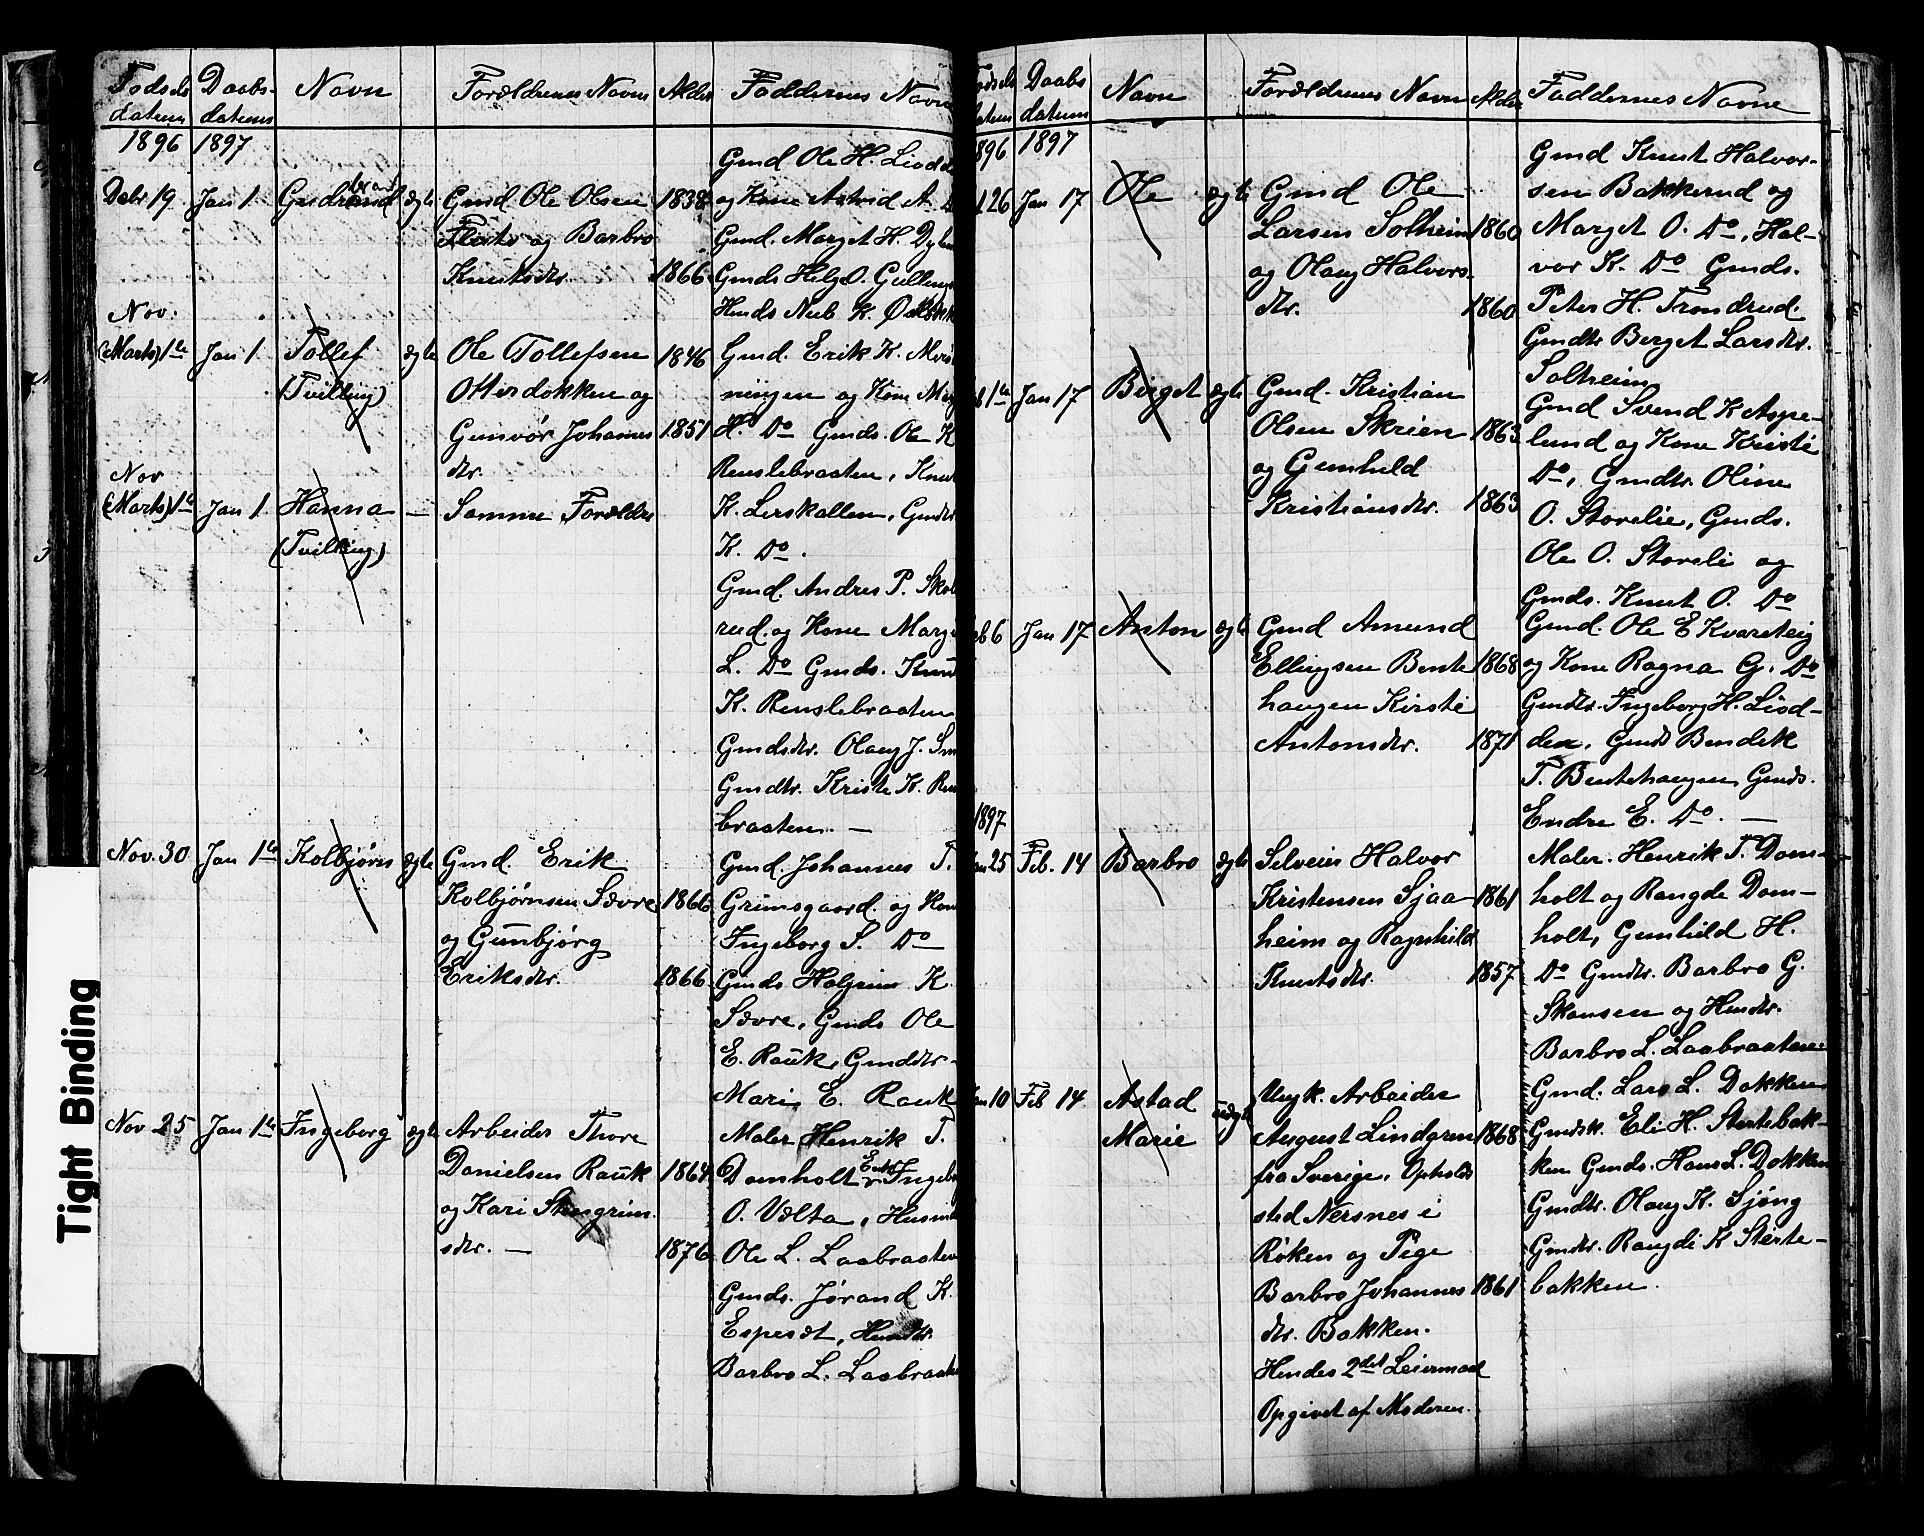 Fødsels
datum
Daabs-
datums
Navn
Forældrenes Navne
Alder
Faddernes Navne
1896
1897
Debr 19
Jan 1
Gudbrand
ægte
Gmd Ole Olsen
1838
og Barbro
Knutsdtr.
1866
Gmd Ole H. Liodd
og Kone Astrid A. D
Gmd. Marget H.
Gmds Helge O.
Hmds K.
Nov.
(Marts) 1ste
Jan 1
Tollef
(Tvilling)
ægte
Ole Tollefsen
1846
Otterdokken og
Gunvør Johannes
1851
dtr.
Gmd. Erik K.
ningen og Kone
H. Do Gmds. Ole K
Renslebraaten, Knut
K. Lerskallen, Gmdtr.
K. Do.
Nov
(Marts) 1ste
Jan 1
Hanna
(Tvilling)
—
Samme Forældre
Gmd. Andres P.
rud. og Kone Marg
L. Do Gmds. Knut
K. Renslebraaten
Gmdsdtr. Olaug J.
Gmdtr. Kristi K. Ren
braaten. —
Nov. 30
Jan 1ste
Kolbjørn
ægte
Gmd. Erik
Kolbjørnsen Sævre
1866
og Gunbjørg
Eriksdtr.
1866
Gmd. Johannes T.
Grimsgaard. og Kone
Ingeborg S. Do
Gmds Halgrim K.
Sævre, Gmds Ole
E. Rauk, Gmdtr.
Mari E. Rauk
Nov 25
Jan 1ste
Ingeborg
ægte
Arbeider Thore
Danielsen Rauk
1864
og Kari
sdtr. —
1876
Maler Henrik T.
Domholt Enke Ingeb
O. Vælta, Husm
Ole L. Laabraaten
Gmds. Jørand K.
Espeset, Hmdtr.
Barbro L. Laabraaten
Fødsels
datum
Daabs
datums
Navn
Forældrenes Navn
Alder
Faddernes Navne
896
1897
26
Jan 17
Ole
ægte
Gmd Ole
Larsen Solheim
1860
og Olaug Halvors-
dtr.
1860
Gmd Knut Halvor-
sen Bakkerud og
Marget O. Do, Hal-
vor K. Do Gmds.
Peter H. Trondrud.
Gmdtr Berget Larsdtr.
Solheim
1ste
Jan 17
Birget
ægte
Gmd. Kristian
Olsen Skrien
1863
og Gunhild
Kristiansdtr.
1863
Gmd Svend K Aspe-
lund og Kone Kristi
Do, Gmdtr. Oline
O. Storelie, Gmds.
Ole O. Storeli og
Gmds. Knut O. Do
6
Jan 17
Anton
ægte
Gmd Amund
Ellingsen Bente
1868
haugen Kirsti
Antonsdtr.
1871
Gmd. Ole E Kvarsteig
og Kone Ragna G. Do
Gmdtr. Ingeborg H. Liod-
den, Gmds Bendik
T. Bentehaugen, Gmds.
Endre E. Do. —
1897
25
Feb. 14
Barbro
ægte
Selveier Halvor
Kristensen Sjaa
1861
heim og Ragnhild
Knutsdtr.
1857
Maler. Henrik T. Dom-
holt og Rangde Dom-
holt, Gunhild H.
Do Gmdtr. Barbro G.
Skansen og Hmdtr.
Barbro L. Laabraaten
10
Feb 14
Astad
Marie
uægte
Ungk. Arbeider
August Lindgren
1868
fra Sverige, Opholds
sted Nersnes i
Røken og Pige
Barbro Johannes
1861
dtr. Bakken.
Hendes 2det Leiermaal
Opgivet af Moderen.
Gmd. Lars L. Dokken
Gmdsk. Eli H. Stertebak-
ken Gmds. Hans L. Dokken
Gmdtr. Olaug K. Sjöng
Gmdtr. Rangdi K Sterte-
bakken.
Tight Binding